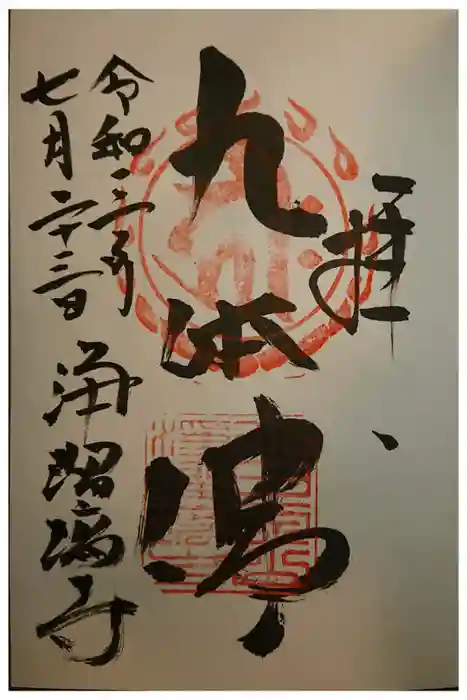 拝
九体佛
令和三年
七月二十三日
浄瑠璃寺